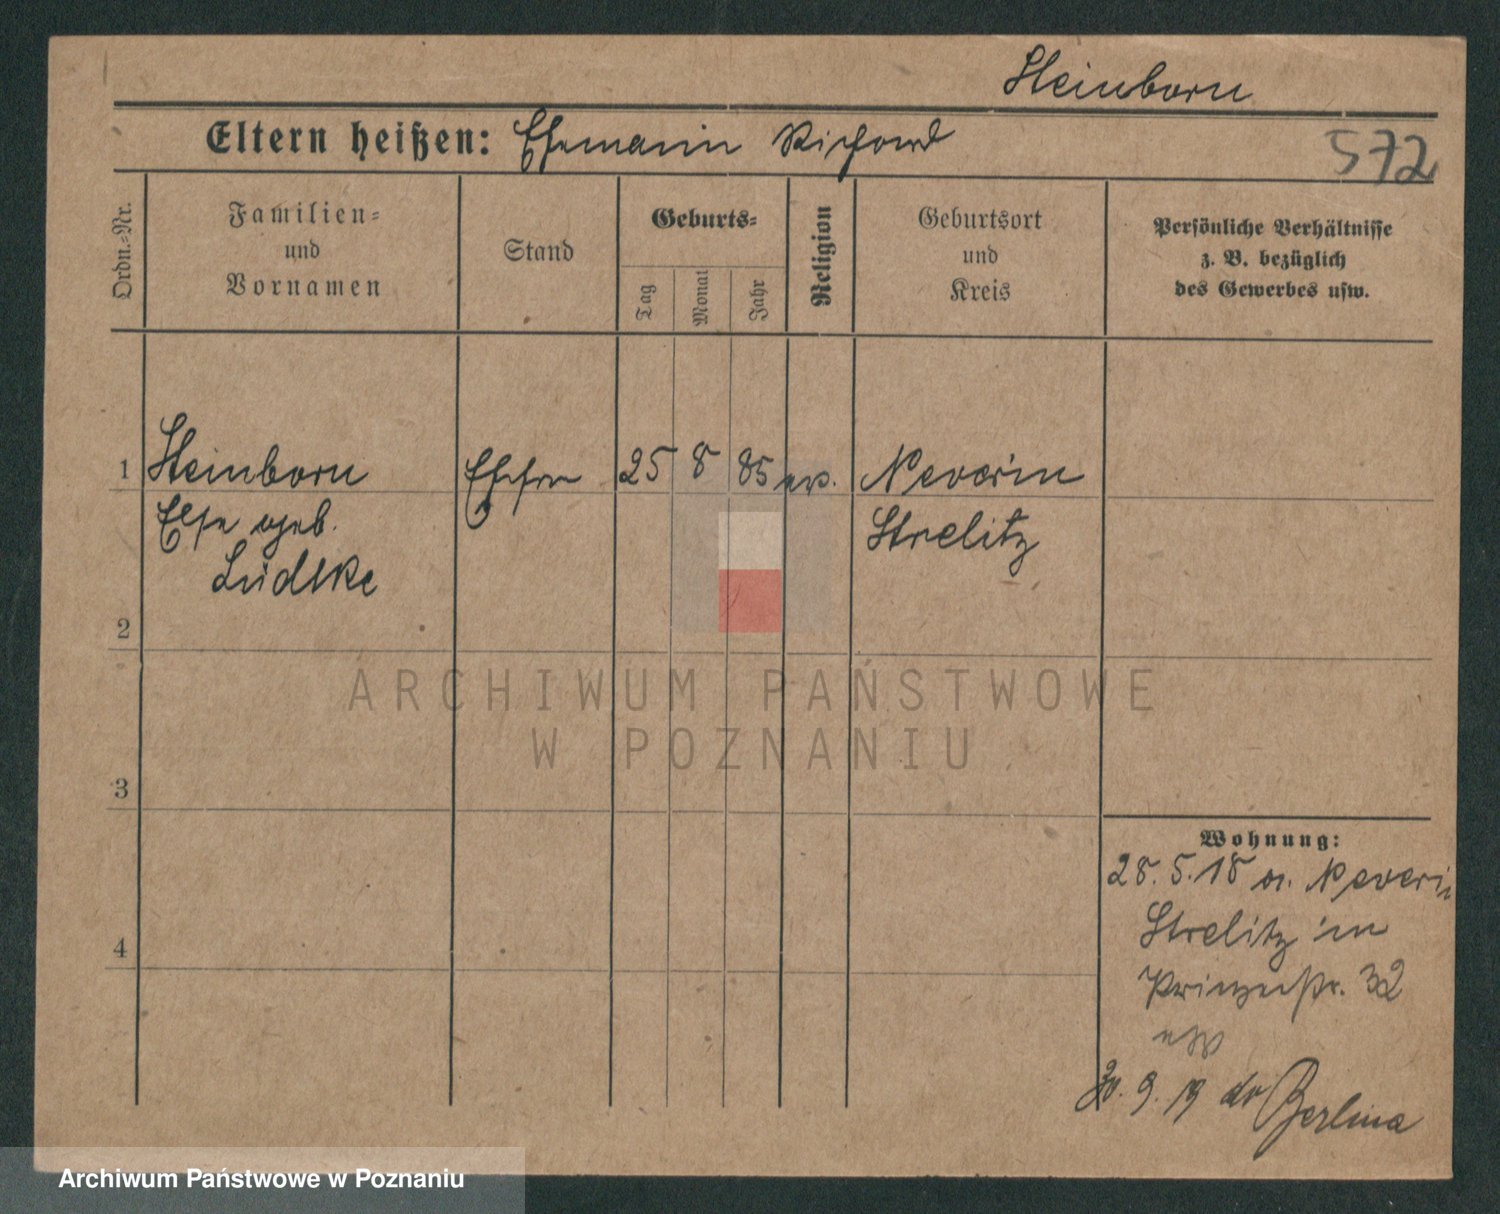 Steinborn
Eltern heißen: Ehemann Richard
572
Ordn.-Nr.
Familien-
und
Vornamen
Stand
Geburts-
Tag
Monat
Jahr
Religion
Geburtsort
und
Kreis
Persönliche Verhältnisse
z. B. bezüglich
des Gewerbes usw.
1 Steinborn Ehefr 25 8 85 ev. Neverin
Else geb. Strelitz
Lüdtke
2
ARCHIWUM PAŃSTWOWE
W POZNANIU
3
Wohnung:
28.5.18 a. Neverin
Strelitz in
Prinzenstr. 32
4
20.9.19 Berlina
Archiwum Państwowe w Poznaniu